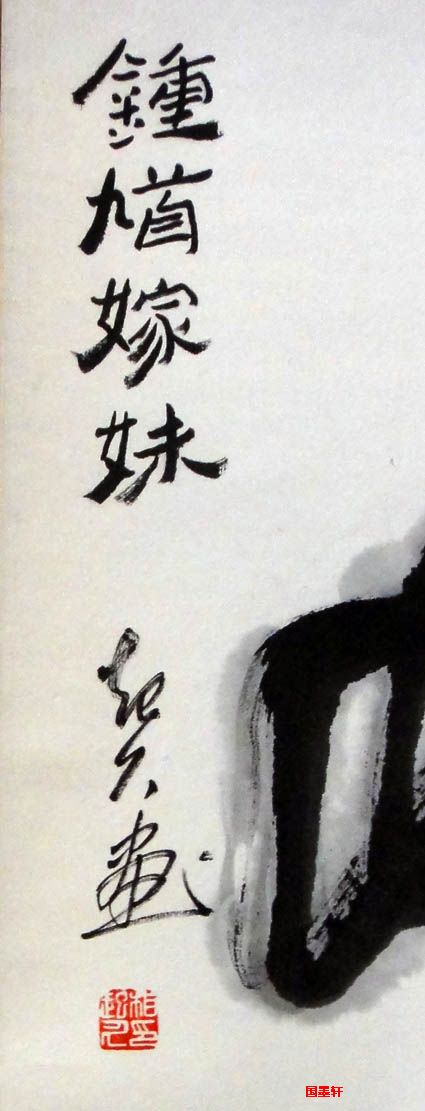 鍾馗嫁妹
起久画
国墨轩